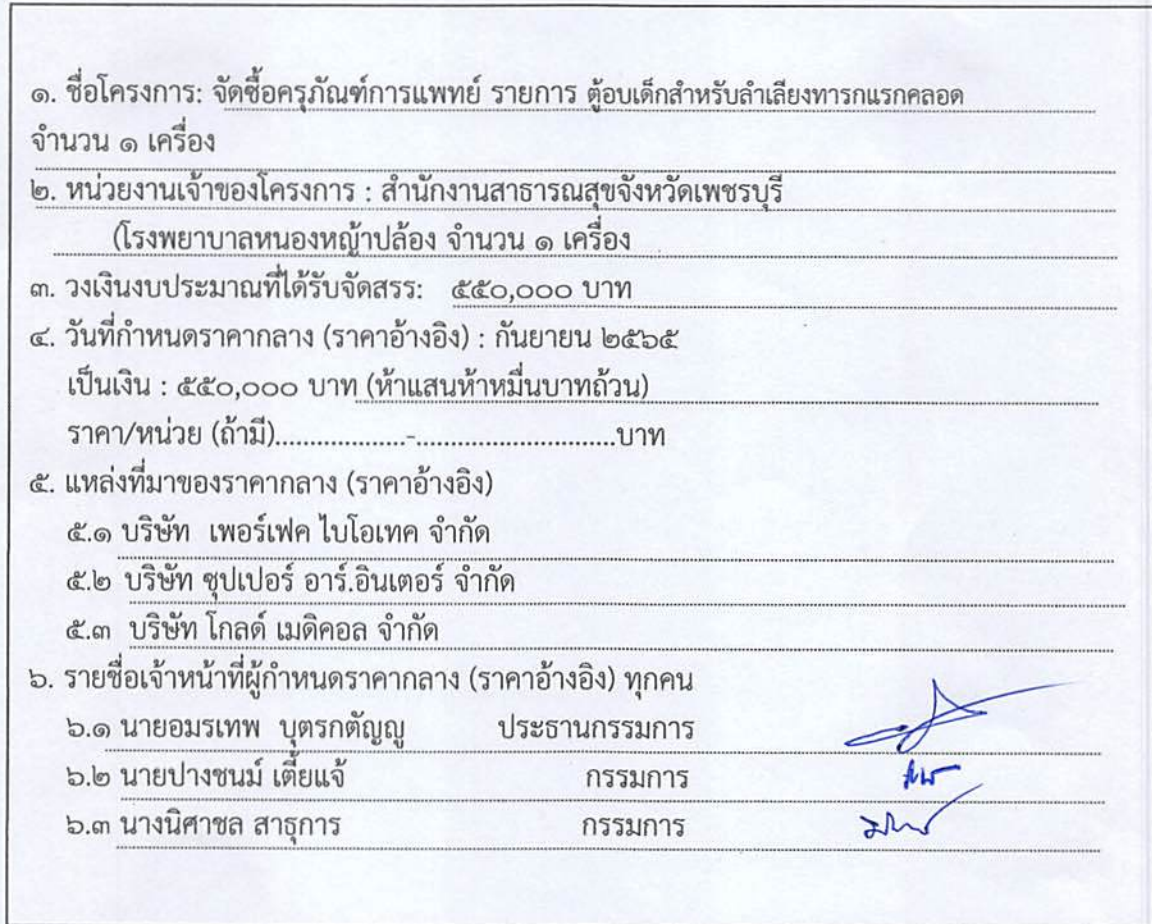 ๑. ชื่อโครงการ: จัดซื้อครุภัณฑ์การแพทย์ รายการ ตู้อบเด็กสำหรับลำเลียงทารกแรกคลอด
จำนวน ๑ เครื่อง
๒. หน่วยงานเจ้าของโครงการ : สำนักงานสาธารณสุขจังหวัดเพชรบุรี
(โรงพยาบาลหนองหญ้าปล้อง จำนวน ๑ เครื่อง
๓. วงเงินงบประมาณที่ได้รับจัดสรร: ๕๕๐,๐๐๐ บาท
๔. วันที่กำหนดราคากลาง (ราคาอ้างอิง) : กันยายน ๒๕๖๕
เป็นเงิน : ๕๕๐,๐๐๐ บาท (ห้าแสนห้าหมื่นบาทถ้วน)
ราคา/หน่วย (ถ้ามี)...................-.............................บาท
๕. แหล่งที่มาของราคากลาง (ราคาอ้างอิง)
๕.๑ บริษัท เพอร์เฟค ไบโอเทค จำกัด
๕.๒ บริษัท ซุปเปอร์ อาร์.อินเตอร์ จำกัด
๕.๓ บริษัท โกลด์ เมดิคอล จำกัด
๖. รายชื่อเจ้าหน้าที่ผู้กำหนดราคากลาง (ราคาอ้างอิง) ทุกคน
๖.๑ นายอมรเทพ บุตรกตัญญู ประธานกรรมการ
๖.๒ นายปางชนม์ เตี้ยแจ้ กรรมการ
๖.๓ นางนิศาชล สาธุการ กรรมการ